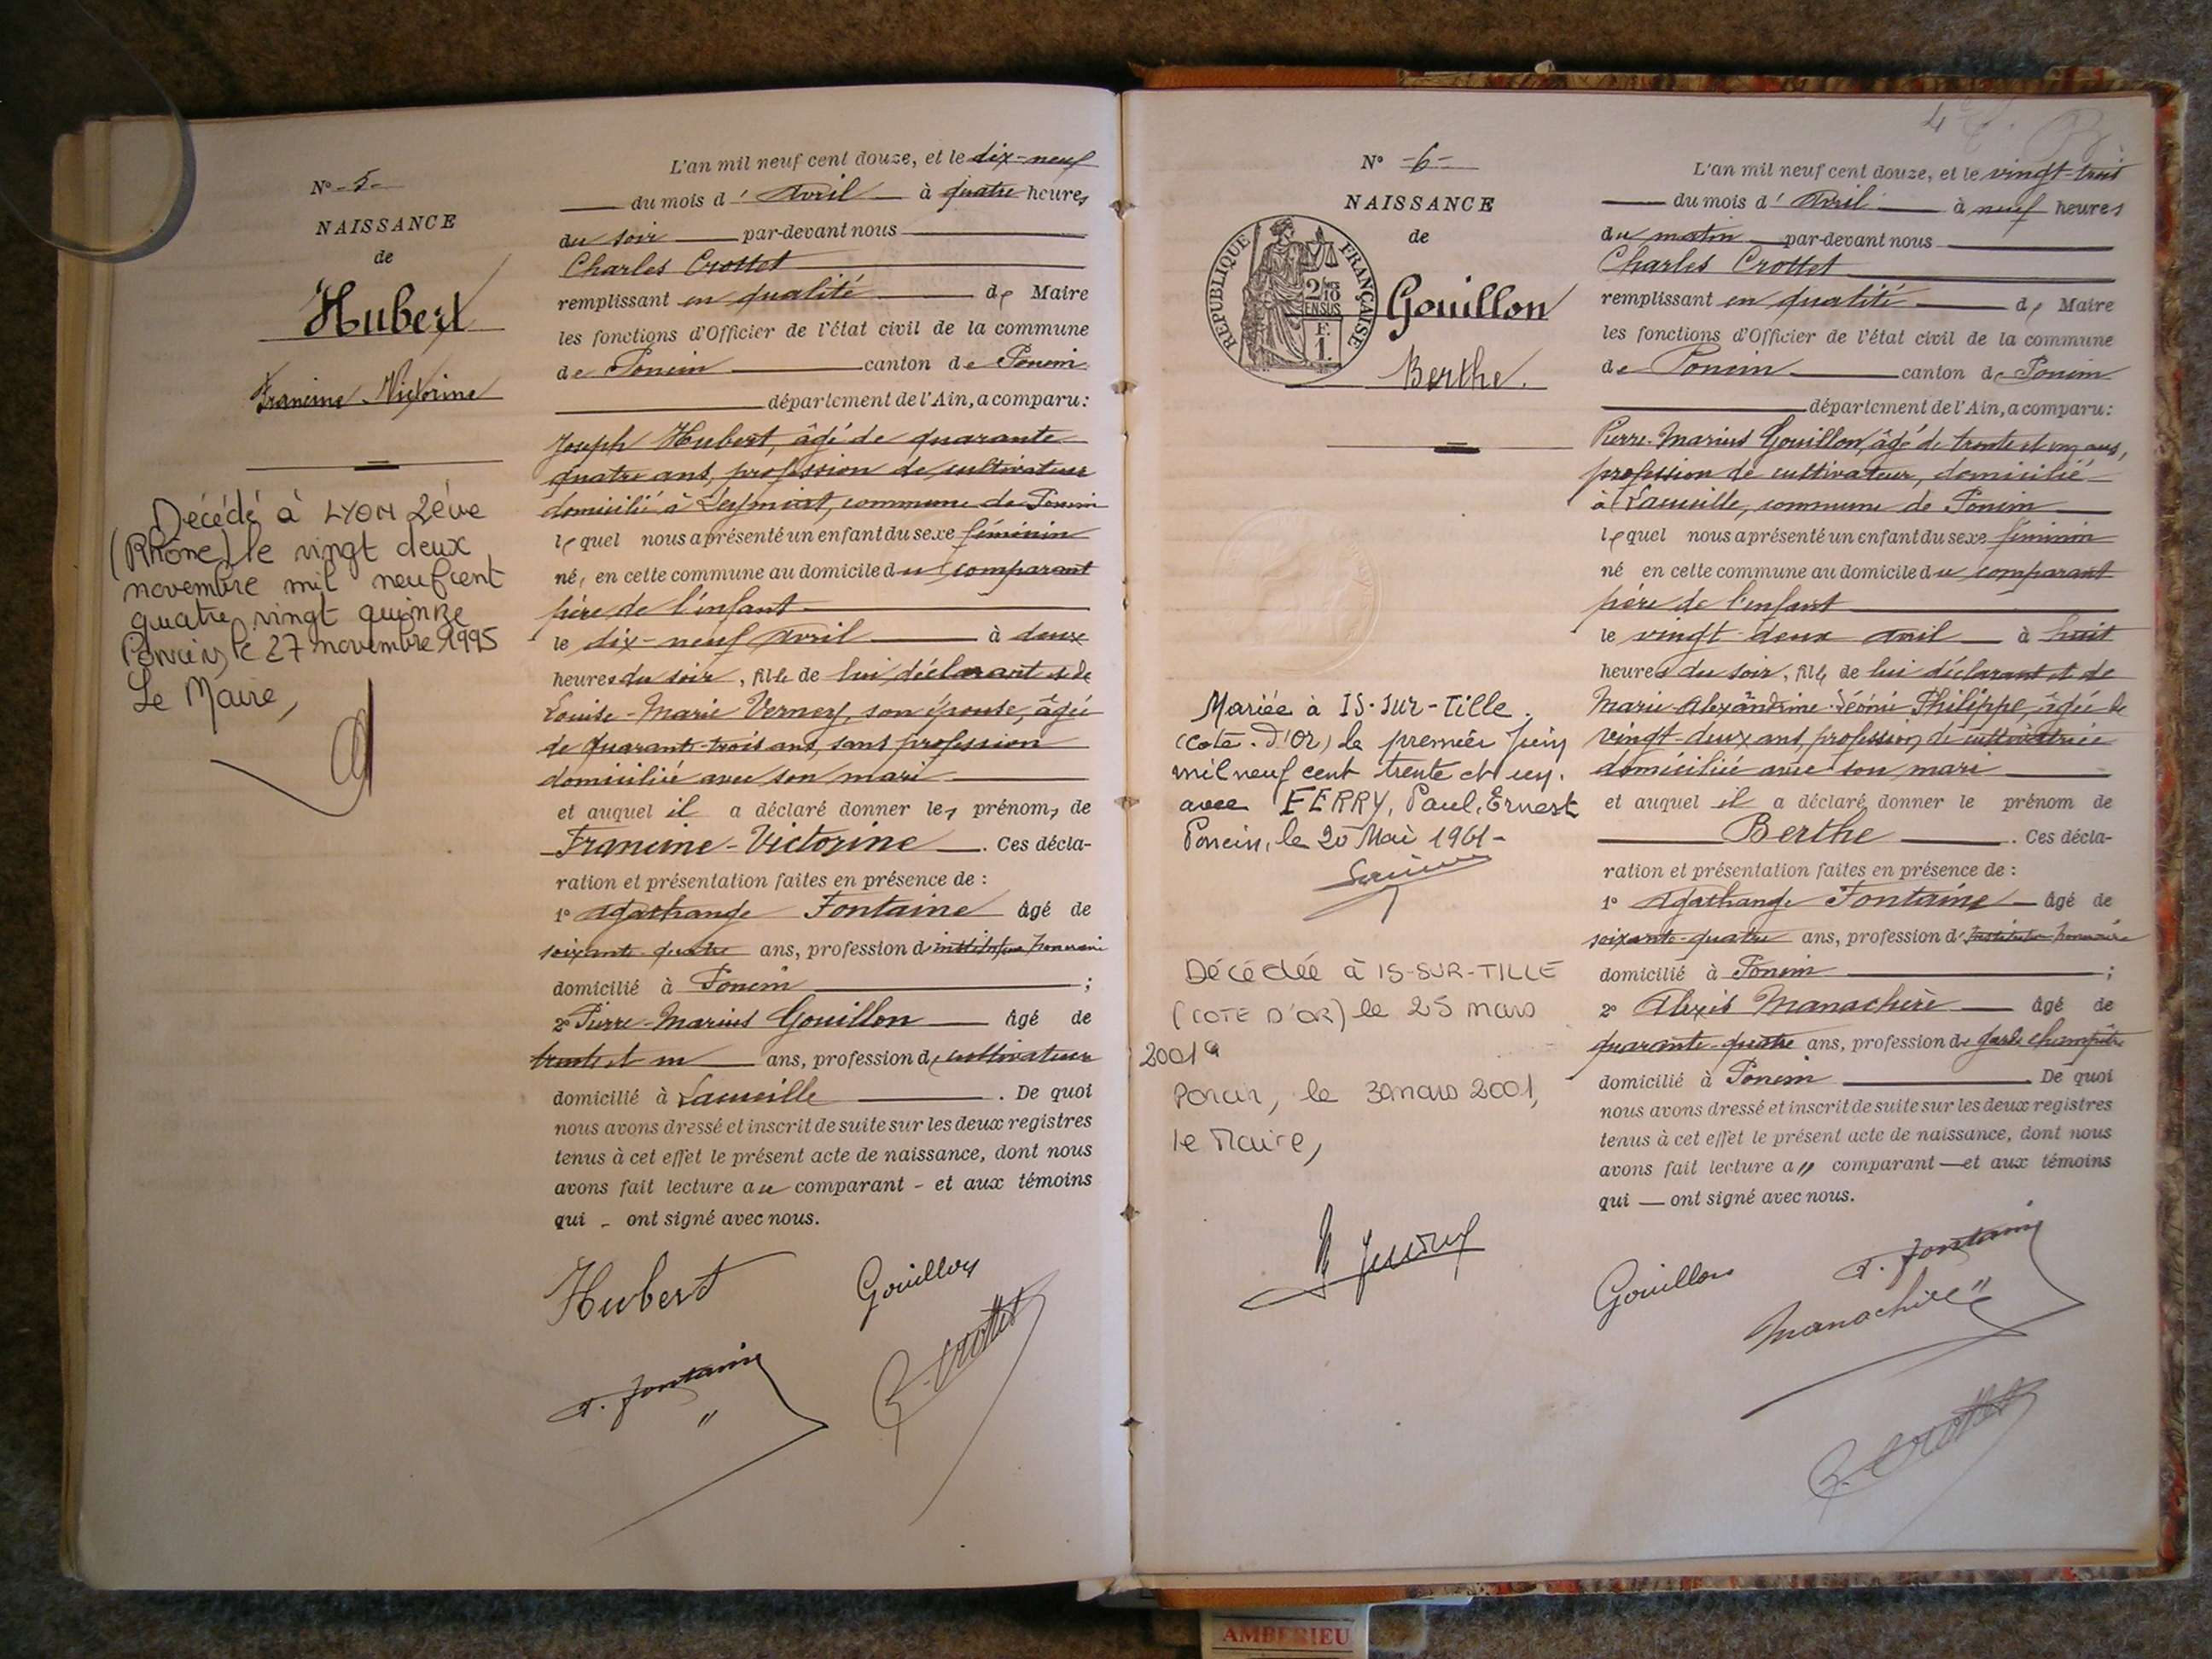 N° - 5 -
NAISSANCE
de
Hubert
Francine-Victorine
Décédé à LYON 2ève
(Rhône) le vingt deux
novembre mil neuf cent
quatre vingt quinze
Poncin, le 27 novembre 1995
Le Maire,
L'an mil neuf cent douze, et le dix-neuf
du mois d'Avril à quatre heures
du soir par-devant nous
Charles Crottet
remplissant en qualité de Maire
les fonctions d'Officier de l'état civil de la commune
de Poncin canton de Poncin
département de l'Ain, a comparu :
Joseph Hubert, âgé de quarante
quatre ans, profession de cultivateur
domicilié à Leymiat, commune de Poncin
lequel nous a présenté un enfant du sexe féminin
né, en cette commune au domicile du comparant
père de l'enfant
le dix-neuf avril à deux
heures du soir, fille de lui déclarant et de
Louise-Marie Verney, son épouse, âgée
de quarante-trois ans, sans profession
domiciliée avec son mari
et auquel il a déclaré donner les prénoms de
Francine-Victorine. Ces décla-
ration et présentation faites en présence de :
1° Agathange Fontaine âgé de
soixante-quatre ans, profession d'instituteur honoraire
domicilié à Poncin ;
2° Pierre-Marius Gouillon âgé de
trente et un ans, profession de cultivateur
domicilié à Lacueille. De quoi
nous avons dressé et inscrit de suite sur les deux registres
tenus à cet effet le présent acte de naissance, dont nous
avons fait lecture au comparant - et aux témoins
qui - ont signé avec nous.
Hubert Gouillon
A. Fontaine C. Crottet
4
N° - 6 -
NAISSANCE
de
REPUBLIQUE FRANÇAISE
2/10
EN SUS
F.
1.
Gouillon
Berthe.
Mariée à IS-sur-Tille
(Côte-d'Or) le premier Juin
mil neuf cent trente et un.
avec FERRY, Paul, Ernest
Poncin, le 20 Mai 1961-
Décédée à IS-SUR-TILLE
(COTE D'OR) le 25 mars
2001
Poncin, le 30 mars 2001,
le Maire,
L'an mil neuf cent douze, et le vingt-trois
du mois d'Avril à neuf heures
du matin par-devant nous
Charles Crottet
remplissant en qualité de Maire
les fonctions d'Officier de l'état civil de la commune
de Poncin canton de Poncin
département de l'Ain, a comparu :
Pierre-Marius Gouillon, âgé de trente et un ans,
profession de cultivateur, domicilié
à Lacueille, commune de Poncin
lequel nous a présenté un enfant du sexe féminin
né en cette commune au domicile du comparant
père de l'enfant
le vingt deux avril à huit
heures du soir, fille de lui déclarant et de
Marie-Alexandrine-Léonie Philippe, âgée de
vingt-deux ans, profession de cultivatrice
domiciliée avec son mari
et auquel il a déclaré donner le prénom de
Berthe. Ces décla-
ration et présentation faites en présence de :
1° Agathange Fontaine âgé de
soixante-quatre ans, profession d'Instituteur honoraire
domicilié à Poncin ;
2° Alexis Manachère âgé de
quarante-quatre ans, profession de garde champêtre
domicilié à Poncin. De quoi
nous avons dressé et inscrit de suite sur les deux registres
tenus à cet effet le présent acte de naissance, dont nous
avons fait lecture a" comparant — et aux témoins
qui — ont signé avec nous.
Gouillon A. Fontaine
Manachère
C. Crottet
AMBERIEU